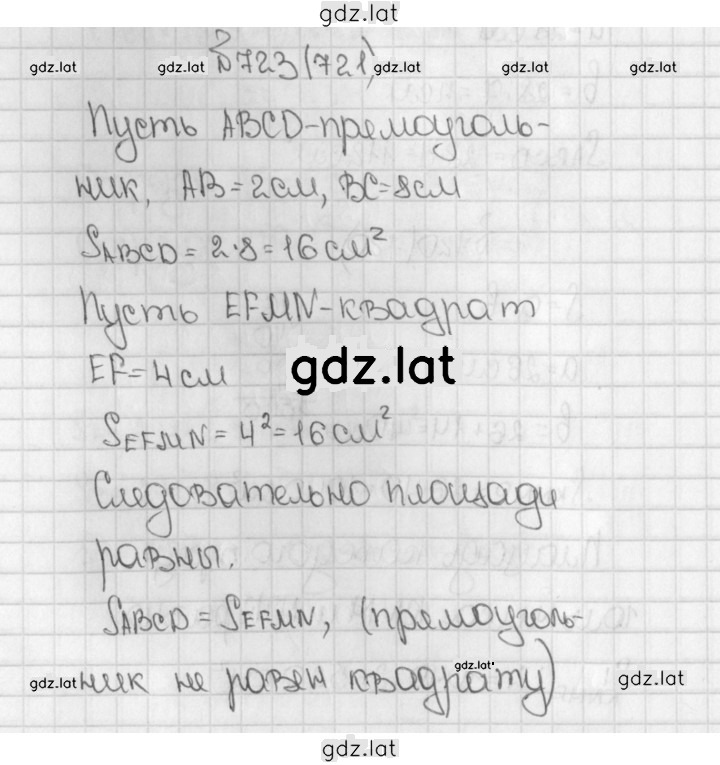 gdz.lat
№723(721)
gdz.lat gdz.lat gdz.lat gdz.lat gdz.lat
Пусть ABCD-прямоуголь-
ник, AB=2см, BC=8см
SABCD=2·8=16см²
Пусть EFMN-квадрат
EF=4см
gdz.lat
SEFMN=4²=16см²
Следовательно площади
равны.
SABCD=SEFMN, (прямоуголь-
gdz.lat ник не равен квадрату)
gdz.lat gdz.lat
gdz.lat